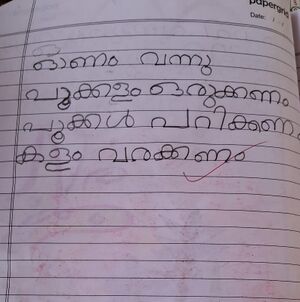 papergrid
Date:
ഓണം വന്നു
പൂക്കളം ഒരുക്കണം
പൂക്കൾ പറിക്കണം
കളം വരക്കണം